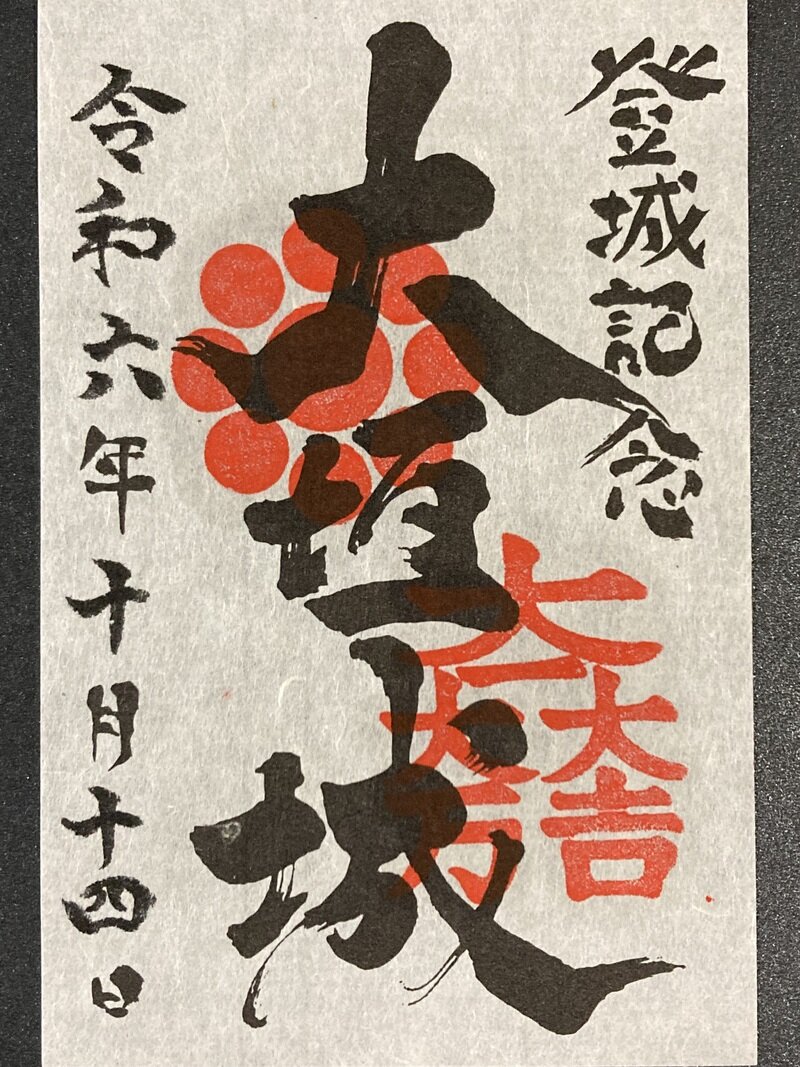 登城記念
大垣城
大一大万大吉
令和六年十月十四日